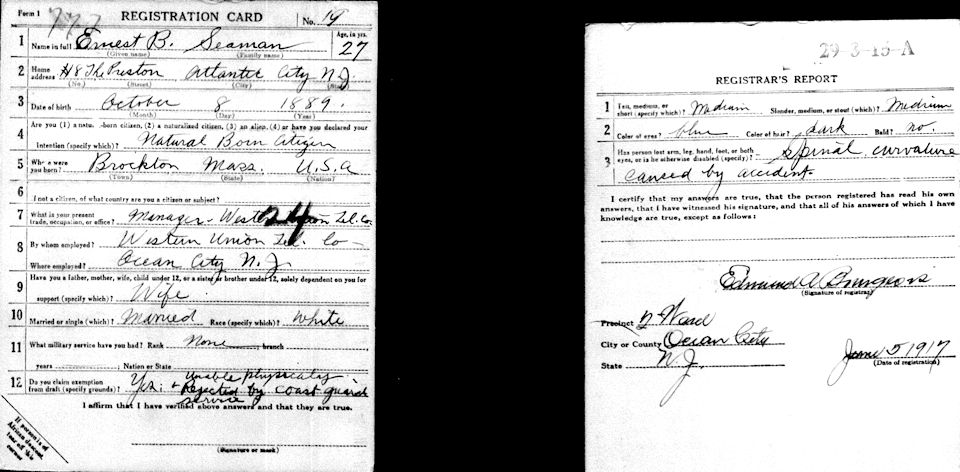 Form 1 777 REGISTRATION CARD No. 19
1 Name in full Ernest B. Seaman Age, in yrs. 27
(Given name) (Family name)
2 Home address H8 The Preston Atlantic City N.J.
(No.) (Street) (City) (State)
3 Date of birth October 8 1889.
(Month) (Day) (Year)
4 Are you (1) a natu -born citizen, (2) a naturalized citizen, (3) an alien, (4) or have you declared your
intention (specify which)? Natural Born Citizen
5 Where were you born? Brockton Mass. U.S.A
(Town) (State) (Nation)
6 I not a citizen, of what country are you a citizen or subject?
7 What is your present trade, occupation, or office? Manager - Western Union Tel. Co.
8 By whom employed? Western Union Tel. Co -
Where employed? Ocean City N.J.
9 Have you a father, mother, wife, child under 12, or a sister or brother under 12, solely dependent on you for
support (specify which)? Wife
10 Married or single (which)? Married Race (specify which)? White
11 What military service have you had? Rank None ; branch
years ; Nation or State
12 Do you claim exemption from draft (specify grounds)? Yes: unable physically
+ Rejected by coast guard
service
I affirm that I have verified above answers and that they are true.
(Signature or mark)
If person is of
African descent,
tear off this
corner
29-3-15-A
REGISTRAR'S REPORT
1 Tall, medium, or short (specify which)? Medium Slender, medium, or stout (which)? Medium
2 Color of eyes? blue Color of hair? dark Bald? no.
3 Has person lost arm, leg, hand, foot, or both
eyes, or is he otherwise disabled (specify)? spinal curvature
caused by accident
I certify that my answers are true, that the person registered has read his own
answers, that I have witnessed his signature, and that all of his answers of which I have
knowledge are true, except as follows:
Edmund A Bourgeois
(Signature of registrar)
Precinct 2 Ward
City or County Ocean City
State N.J.
June 5 1917
(Date of registration)